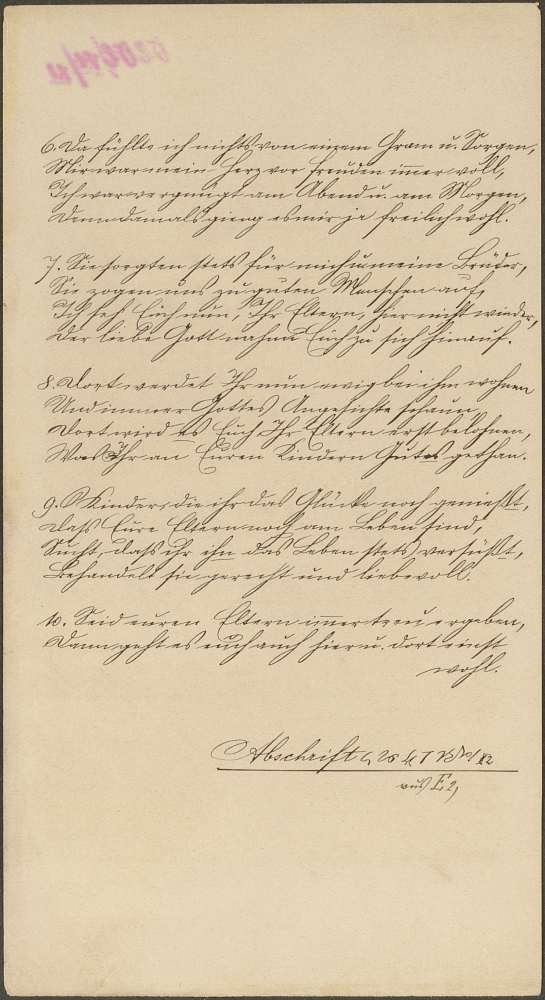 6. Da fühlte ich nichts von einem Gram u. Sorgen,
Mir war mein Herz vor Freuden immer voll,
Ich war vergnügt am Abend u. am Morgen,
Denn damals gieng es mir ja freilich wohl.
7. Sie sorgten stets für mich u. meine Brüder,
Sie zogen uns zu guten Menschen auf,
Ich seh Euch nun, Ihr Eltern, hier nicht wieder,
Der liebe Gott nahm Euch zu sich hinauf.
8. Dort werdet Ihr nun ewig bei ihm wohnen
Und immer Gottes Angesichte schaun,
Dort wird es Euch Ihr Eltern erst belohnen,
Was Ihr an Euren Kindern Gutes gethan.
9. O Kinder, die ihr das Glücke noch genießt,
Daß Eure Eltern noch am Leben sind,
Sucht, daß ihr ihn das Leben stets versüßt,
Behandelt sie gerecht und liebevoll.
10. Seid euren Eltern immer treu ergeben,
Dann geht es euch auch hier u. dort einst
wohl.
Abschrift
aus E 2,